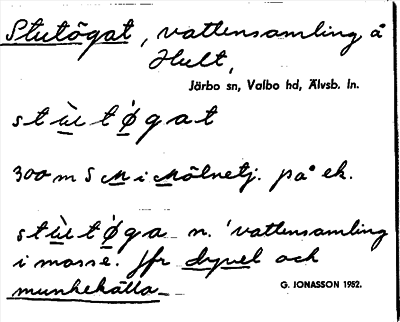 Stutögat, vattensamling å
Hult,
Järbo sn, Valbo hd, Älvsb. ln.
stùtǿgat
300 m S M i Mölnetj. på ek.
stùtǿga n. 'vattensamling
i mosse. Jfr dyvel och
munkekälla
G. JONASSON 1952.